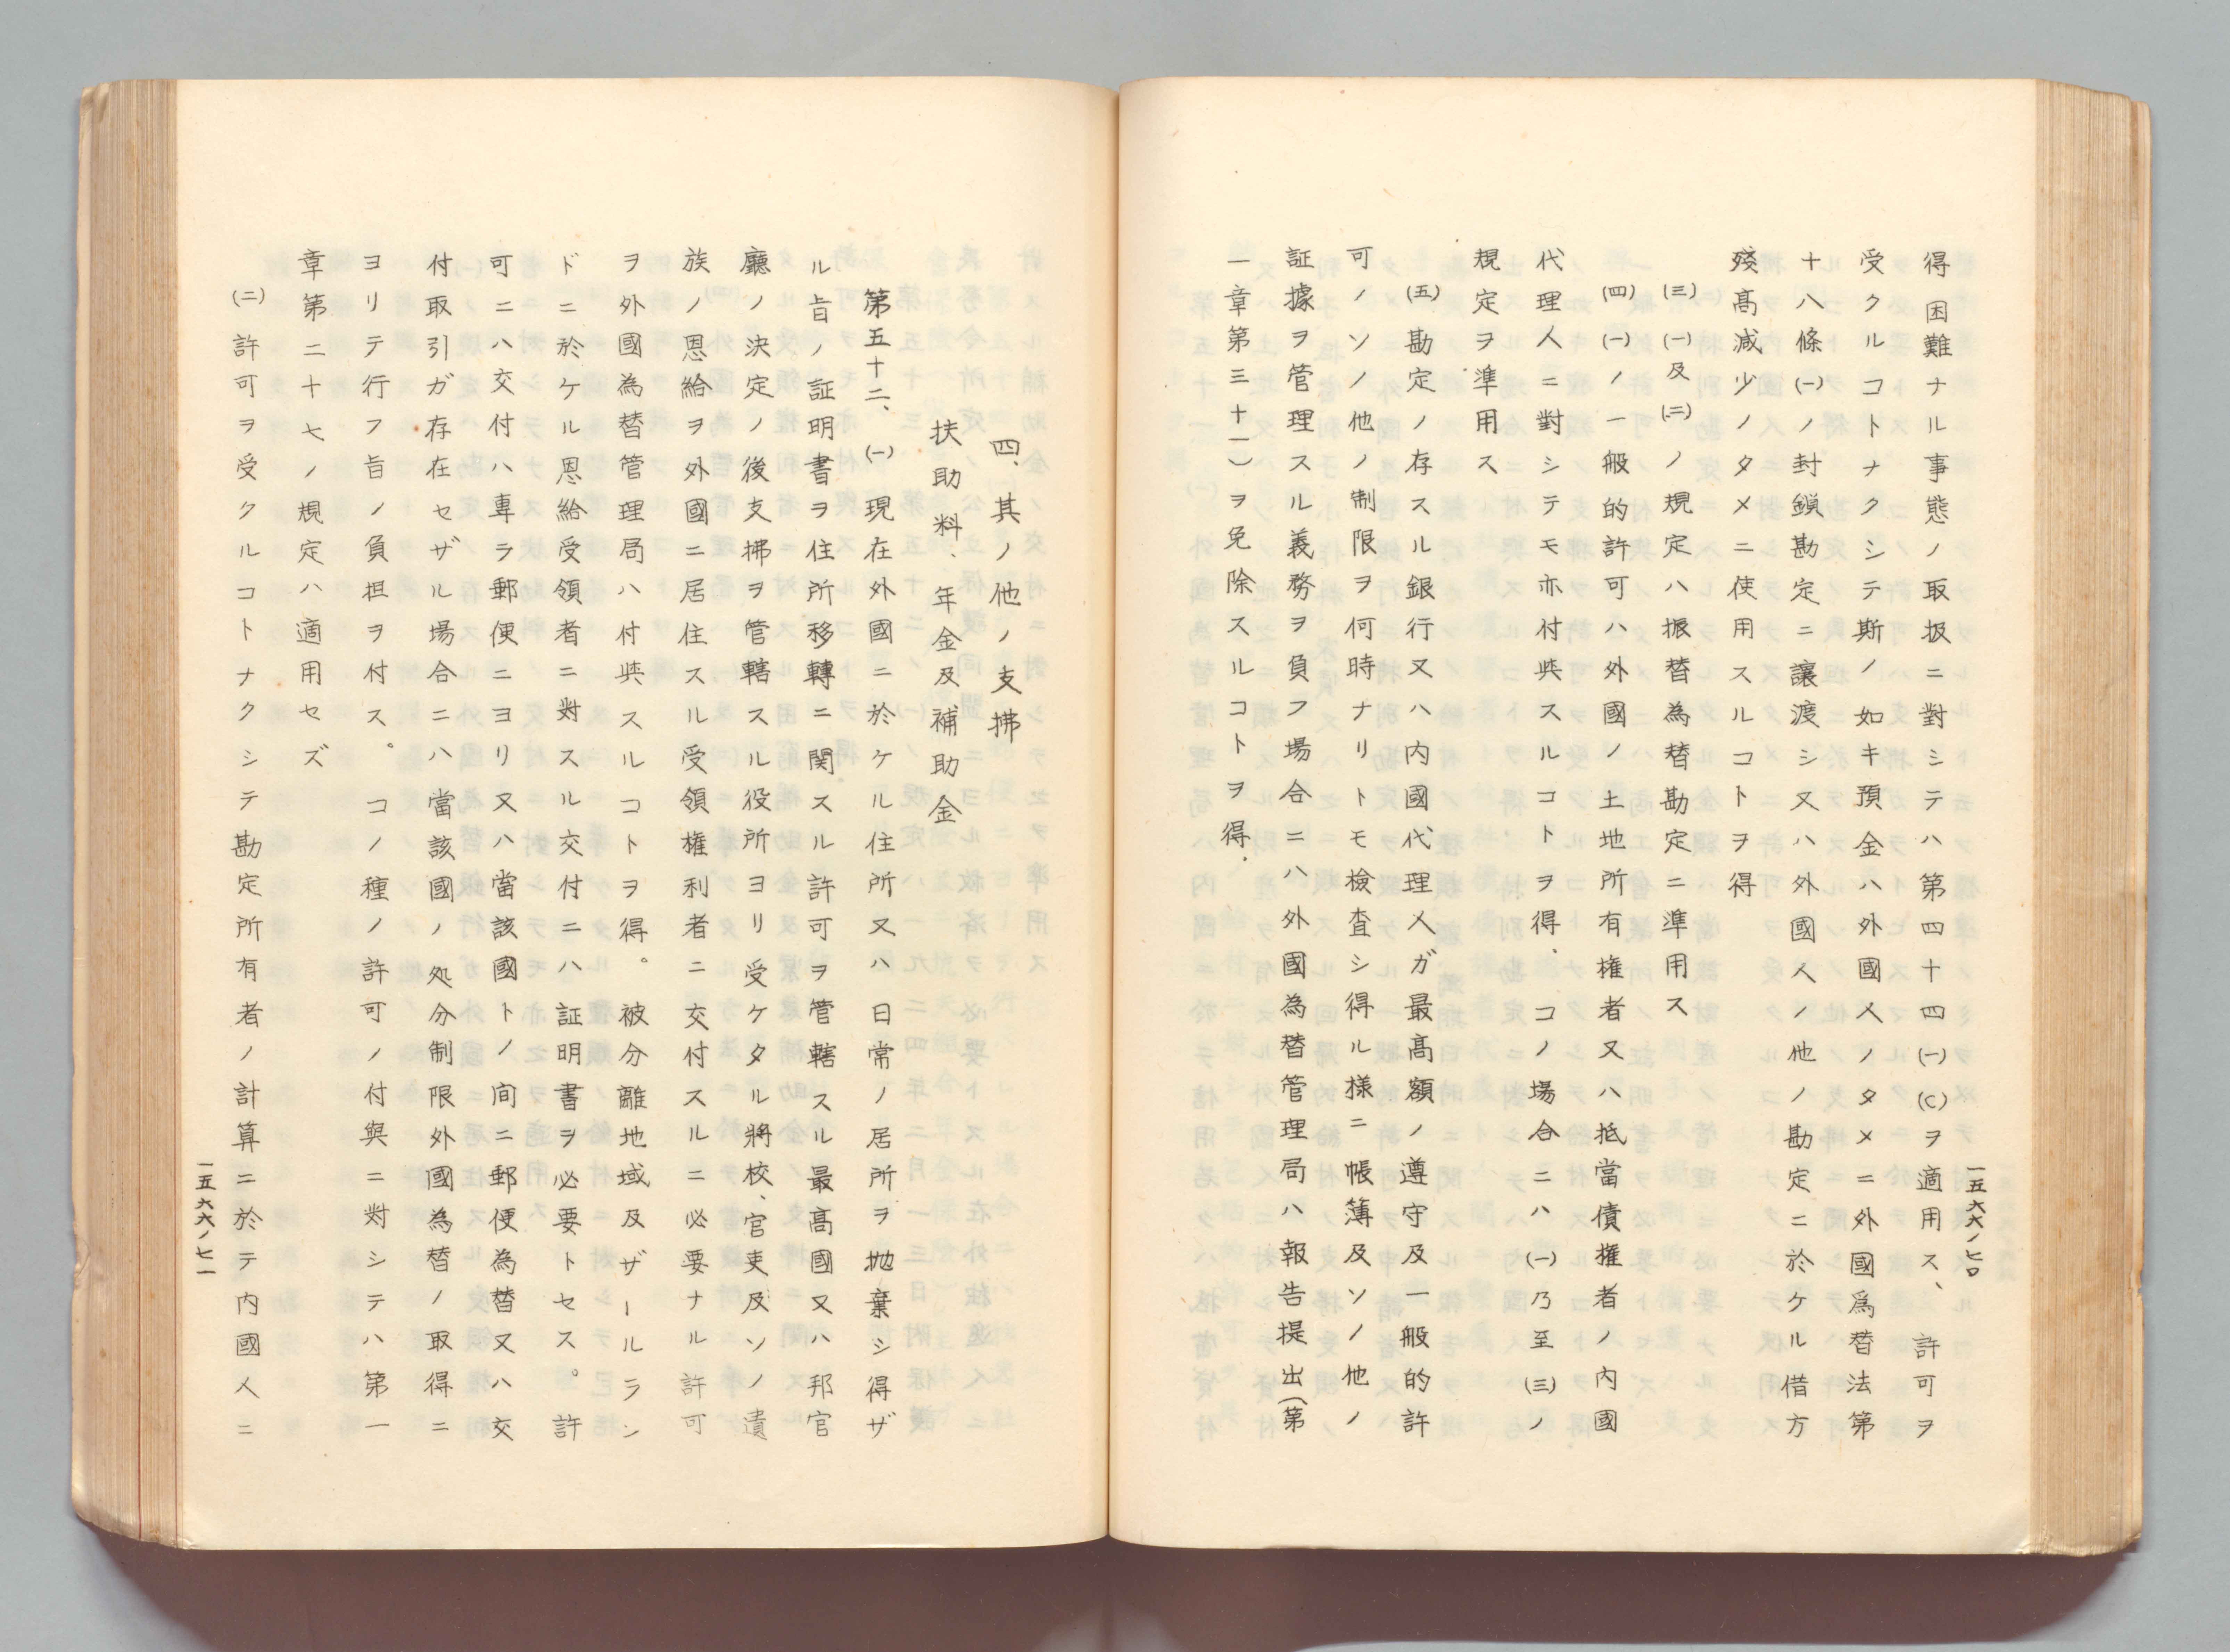 一五六六ノ七〇
得困難ナル事態ノ取扱ニ對シテハ第四十四(一)(C)ヲ適用ス、許可ヲ
受クルコトナクシテ斯ノ如キ預金ハ外國人ノタメニ外國爲替法第
十八條(一)ノ封鎖勘定ニ讓渡シ又ハ外國人ノ他ノ勘定ニ於ケル借方
殘高減少ノタメニ使用スルコトヲ得
(三)(一)及(二)ノ規定ハ振替為替勘定ニ準用ス
(四)(一)ノ一般的許可ハ外國ノ土地所有権者又ハ抵當債権者ノ内國
代理人ニ對シテモ亦付與スルコトヲ得、コノ場合ニハ(一)乃至(三)ノ
規定ヲ準用ス
(五)勘定ノ存スル銀行又ハ内國代理人ガ最高額ノ遵守及一般的許
可ノソノ他ノ制限ヲ何時ナリトモ檢査シ得ル様ニ帳簿及ソノ他ノ
証據ヲ管理スル義務ヲ負フ場合ニハ外國為替管理局ハ報告提出(第
一章第三十一)ヲ免除スルコトヲ得、
四、其ノ他ノ支拂
扶助料、年金及補助金
第五十二、(一)現在外國ニ於ケル住所又ハ日常ノ居所ヲ抛棄シ得ザ
ル旨ノ証明書ヲ住所移轉ニ関スル許可ヲ管轄スル最高國又ハ邦官
廳ノ決定ノ後支拂ヲ管轄スル役所ヨリ受ケタル將校、官吏及ソノ遺
族ノ恩給ヲ外國ニ居住スル受領権利者ニ交付スルニ必要ナル許可
ヲ外國為替管理局ハ付與スルコトヲ得。被分離地域及ザールラン
ドニ於ケル恩給受領者ニ対スル交付ニハ証明書ヲ必要トセス。許
可ニハ交付ハ専ラ郵便ニヨリ又ハ當該國トノ间ニ郵便為替又ハ交
付取引ガ存在セザル場合ニハ當該國ノ処分制限外國為替ノ取得ニ
ヨリテ行フ旨ノ負担ヲ付ス。コノ種ノ許可ノ付與ニ対シテハ第一
章第二十七ノ規定ハ適用セズ
(二)許可ヲ受クルコトナクシテ勘定所有者ノ計算ニ於テ内國人ニ
一五六六ノ七一